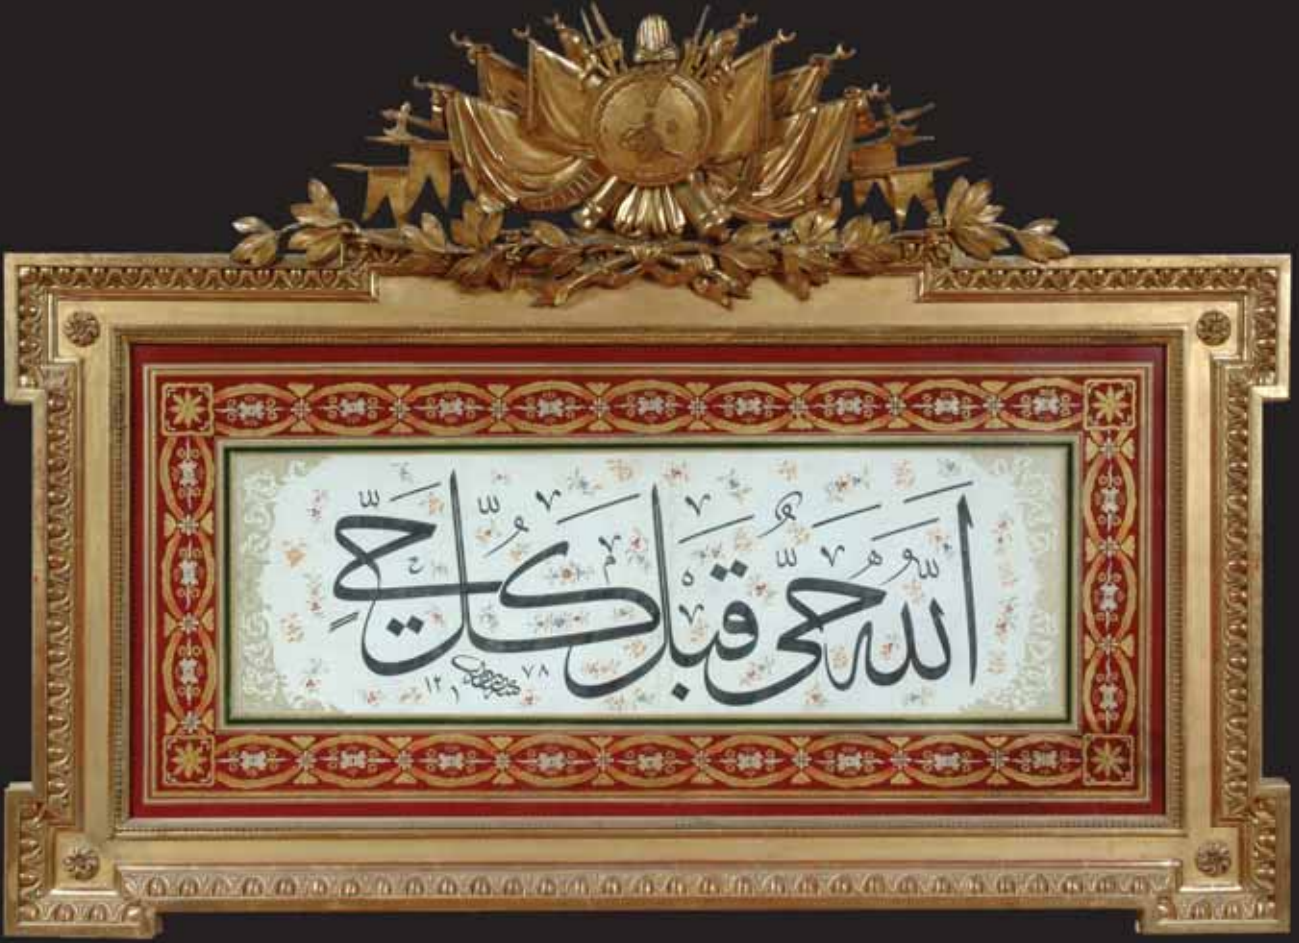 اللّٰهُ حَيٌّ قَبْلَ كُلِّ حَيٍّ
١٢
٧٨